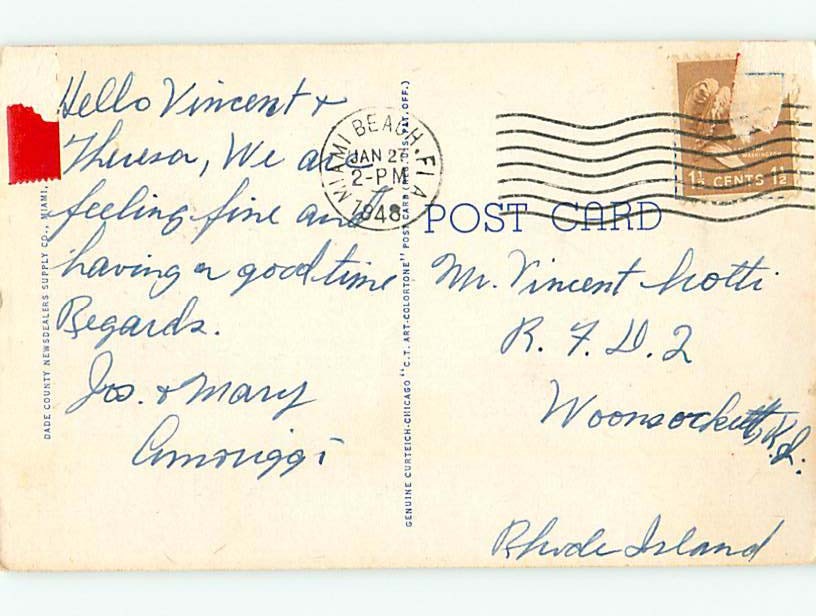 Hello Vincent &
Theresa, We are
feeling fine and
having a good time
Regards.
Jos. & Mary
Amoriggi
DADE COUNTY NEWSDEALERS SUPPLY CO., MIAMI,
GENUINE CURTEICH-CHICAGO "C.T. ART-COLORTONE" POST CARD (REG. U.S. PAT. OFF.)
MIAMI BEACH, FLA
JAN 27
2-PM
1948
WASHINGTON
1½ CENTS 1½
POST CARD
Mr. Vincent
R. F. D. 2
Woonsockett, R.I.
Rhode Island